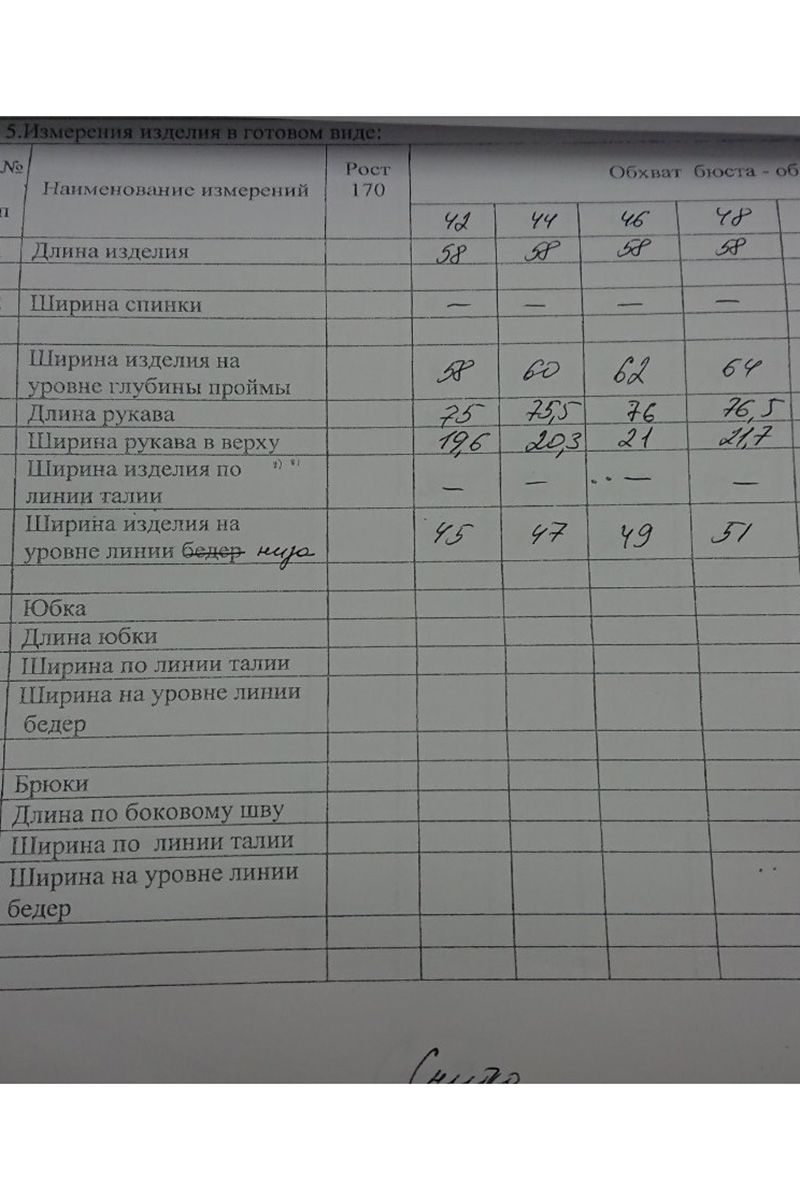 5.Измерения изделия в готовом виде:
№ Наименование измерений Рост 170 Обхват бюста - об
п 42 44 46 48
Длина изделия 58 58 58 58
Ширина спинки — — — —
Ширина изделия на
уровне глубины проймы 58 60 62 64
Длина рукава 75 75,5 76 76,5
Ширина рукава в верху 19,6 20,3 21 21,7
Ширина изделия по
линии талии — — — —
Ширина изделия на
уровне линии бедер низа 45 47 49 51
Юбка
Длина юбки
Ширина по линии талии
Ширина на уровне линии
бедер
Брюки
Длина по боковому шву
Ширина по линии талии
Ширина на уровне линии
бедер